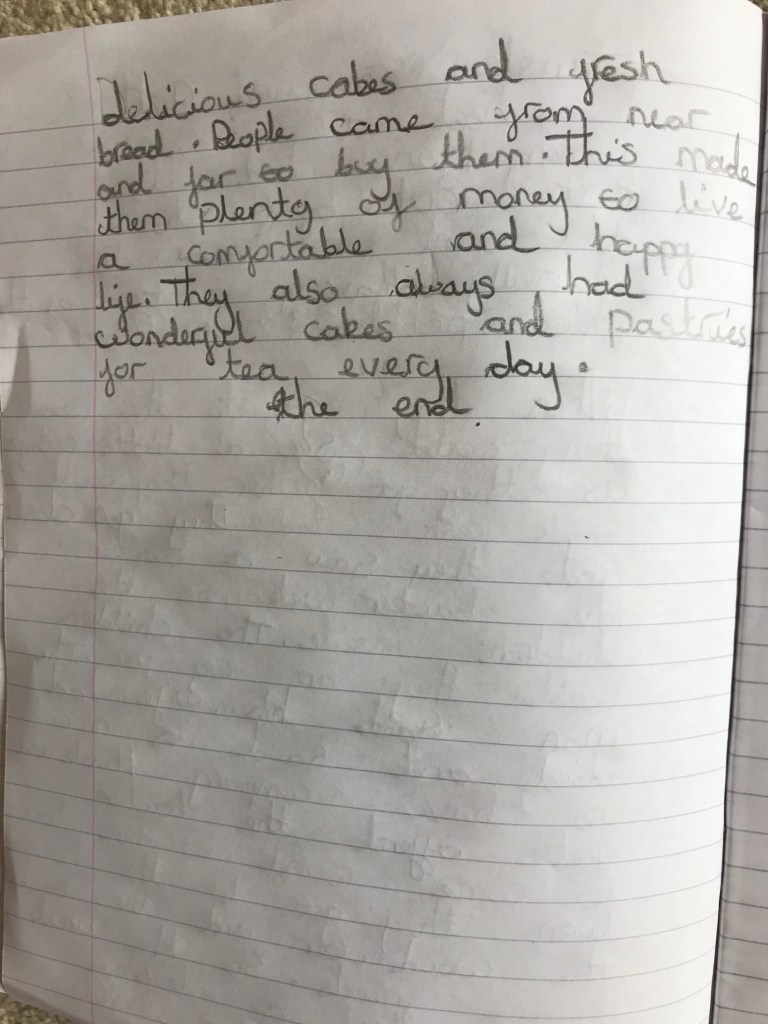 delicious cakes and fresh
bread. People came from near
and far to buy them. This made
them plenty of money to live
a comfortable and happy
life. They also always had
wonderful cakes and pastries
for tea every day.
the end.